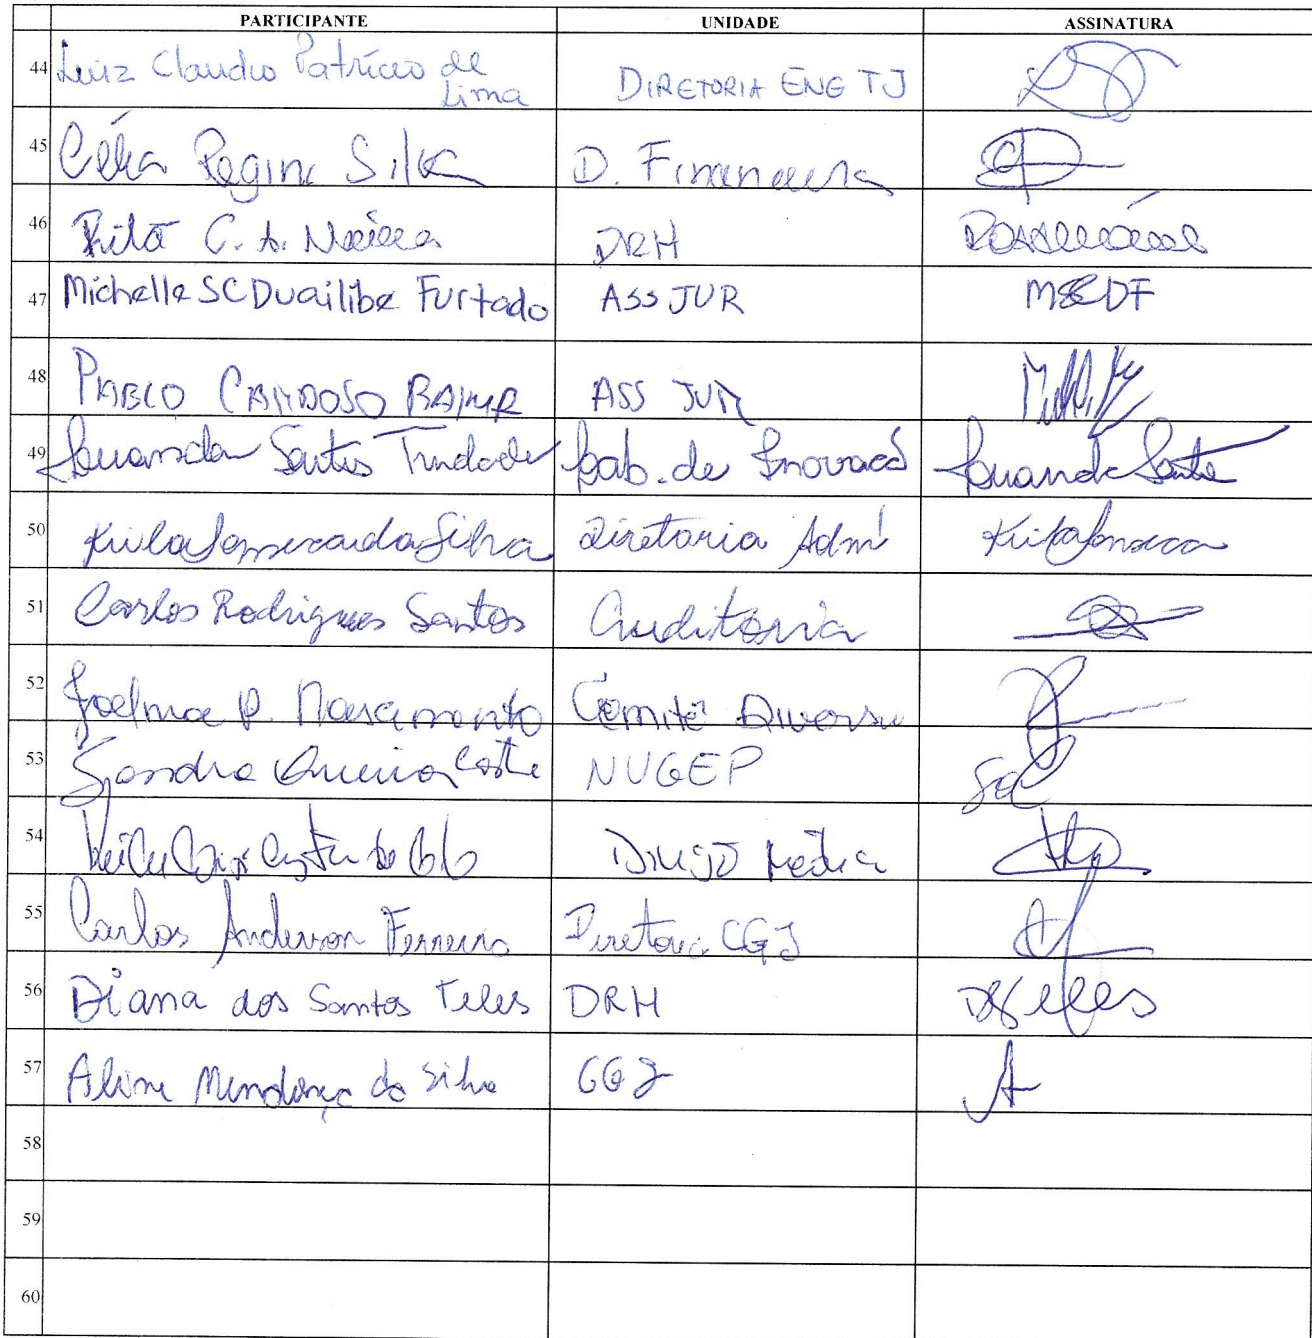 PARTICIPANTE UNIDADE ASSINATURA
44 Luiz Claudio Patrício de Lima DIRETORIA ENG TJ
45 Célia Regina Silva D. Financeira
46 Rita C. A. DRH
47 Michelle SC Duailibe Furtado ASS JUR MSCDF
48 PABLO CARDOSO ASS JUR
49 Luanda Santos Trindade Lab. de Inovação Luanda Santos
50 Keila Fonseca da Silva Diretoria Adm Keila Fonseca
51 Carlos Rodrigues Santos Auditoria
52 Joelma P. Nascimento Comitê Divers
53 Sandra Costa NUGEP
54 Médica
55 Carlos Anderson Ferreira Diretoria CGJ
56 Diana dos Santos Teles DRH DSTeles
57 Aline Mendonça da Silva CGJ A
58
59
60